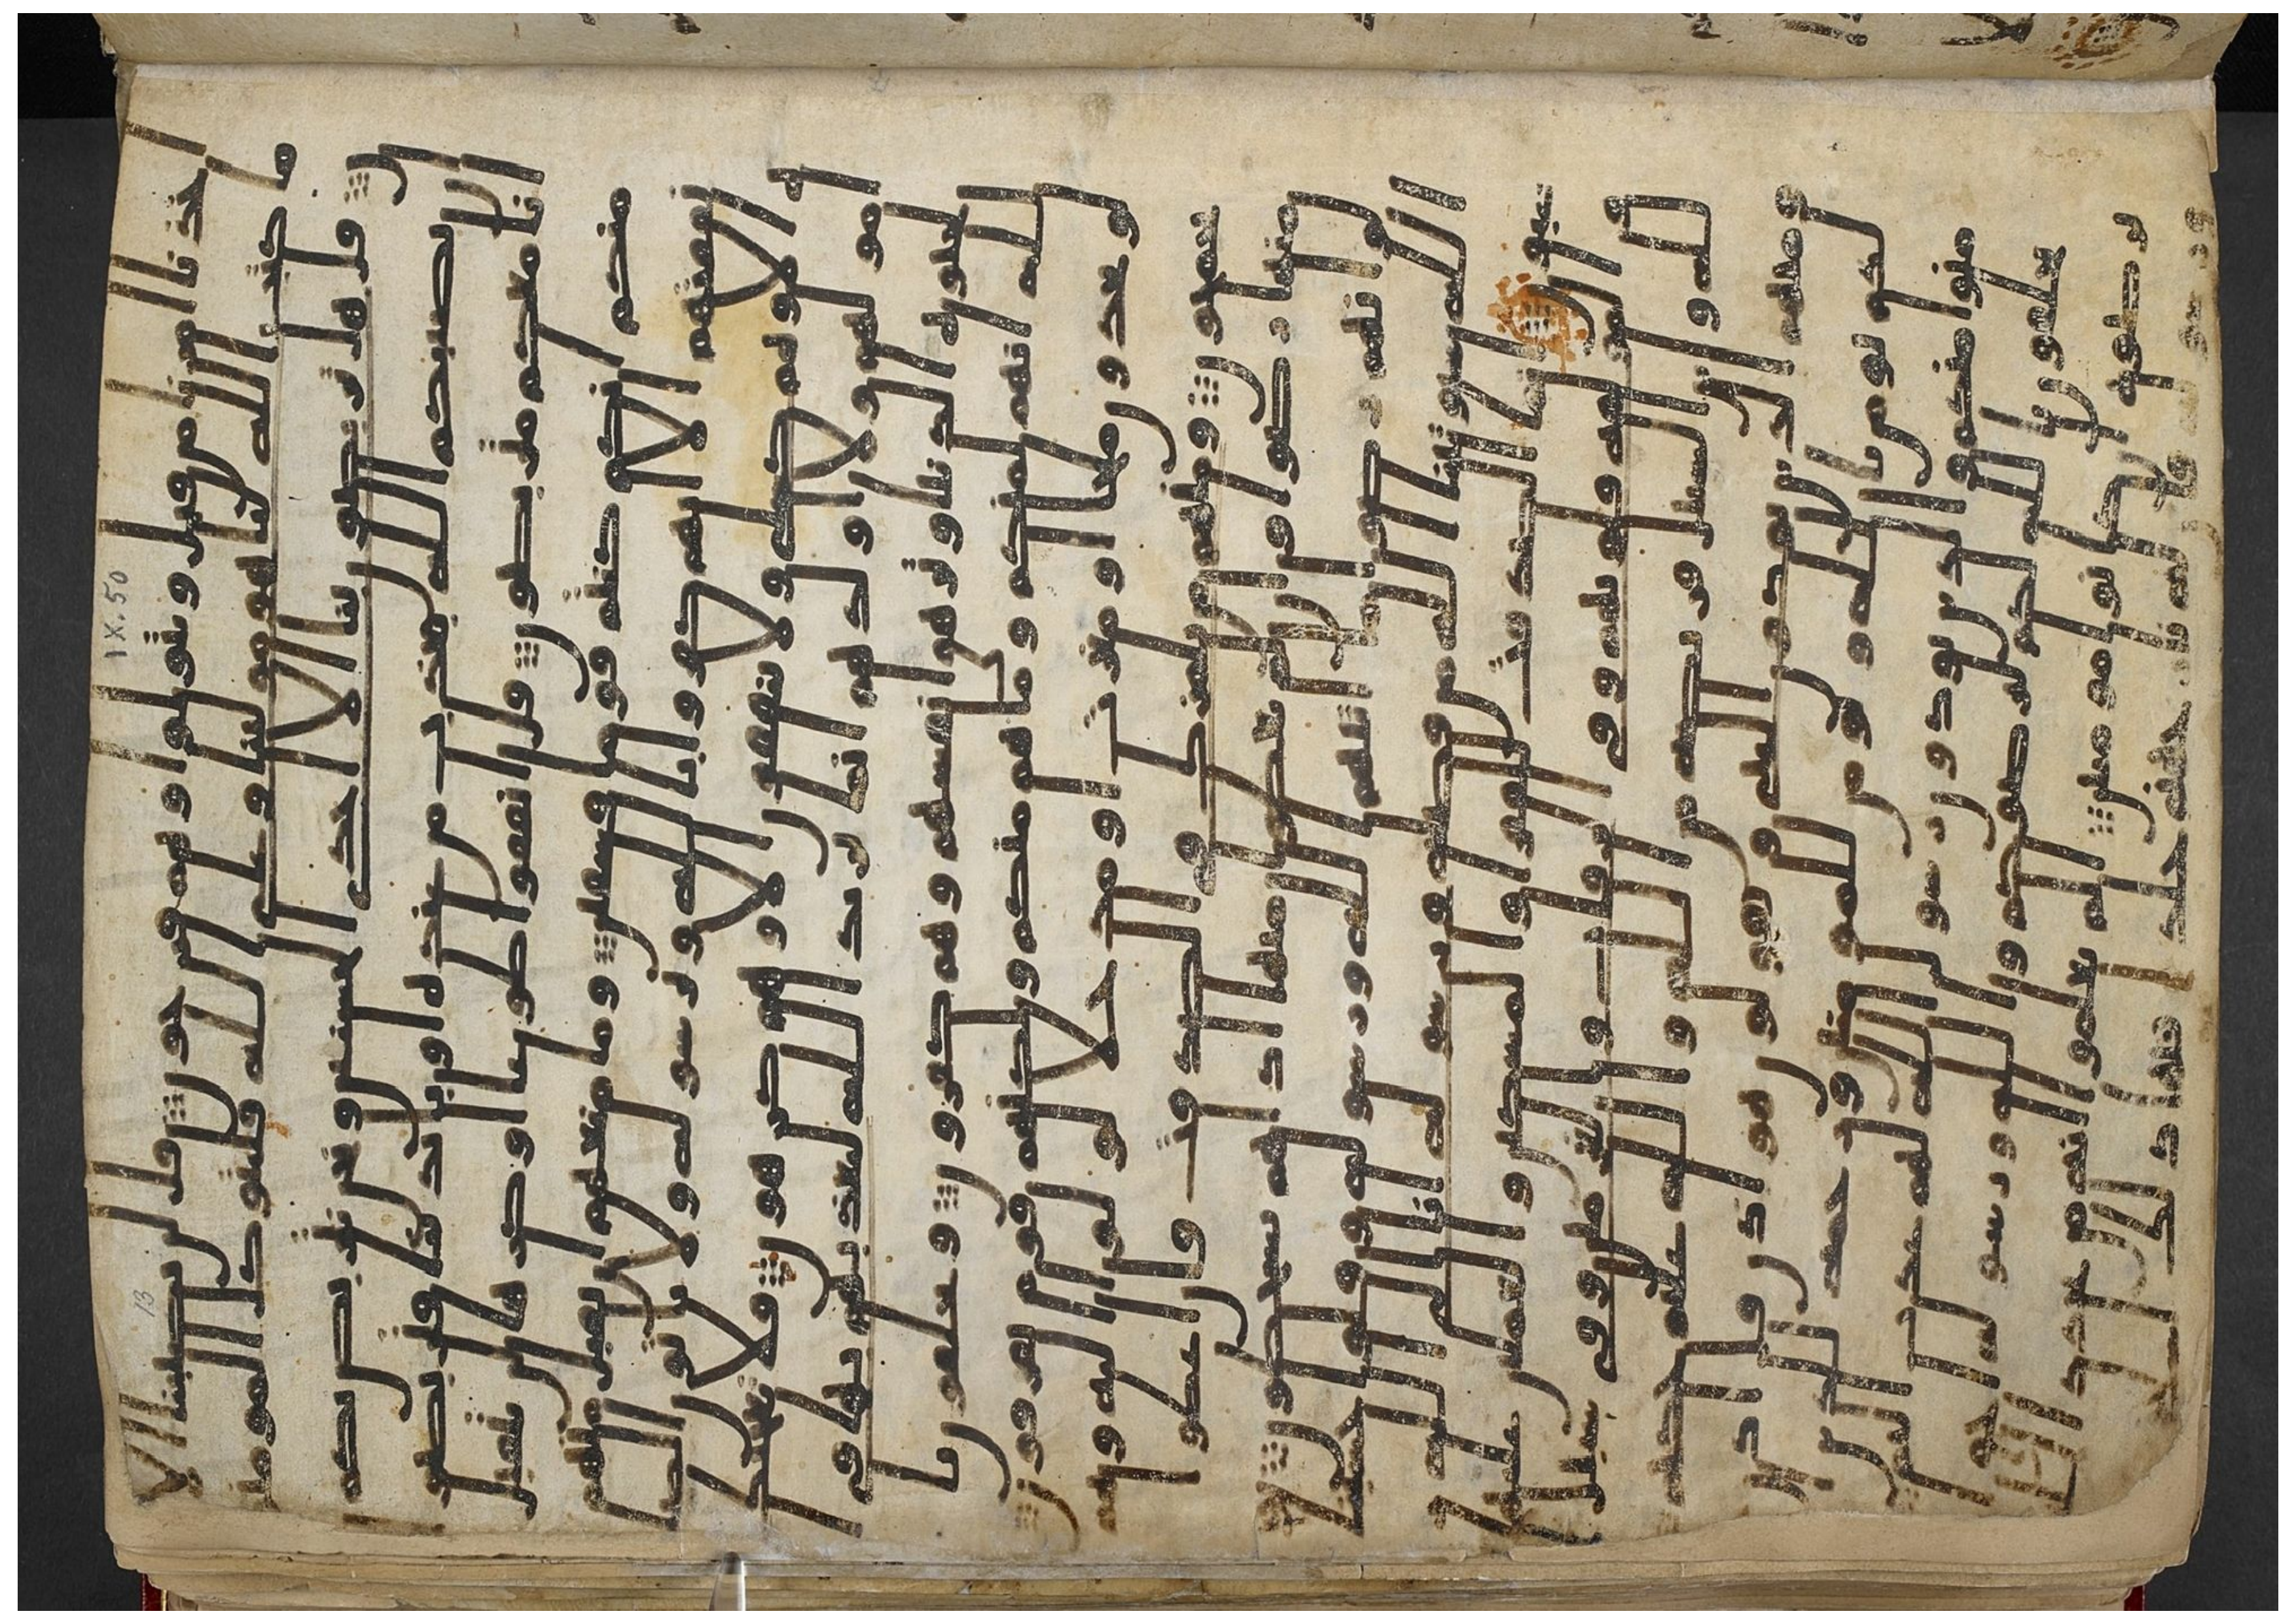 IX.50
13
ا خذنا امرنا من قبل ويتولوا وهم فرحون قل لن يصيبنا الا
ما كتب الله لنا هو مولينا وعلى الله فليتوكل المومنو
ن قل هل تربصون بنا الا احدى الحسنيين ونحن نتربص بكم ا
ن يصيبكم الله بعذاب من عنده او بايدينا فتربصوا
انا معكم متربصون قل انفقوا طوعا او كرها لن يتقبل
منكم انكم كنتم قوما فسقين وما منعهم ان تقبل منهم
نفقتهم الا انهم كفروا بالله وبرسوله ولا ياتون الصلوة
الا وهم كسلى ولا ينفقون الا وهم كرهون فلا تعجبك ا
مولهم ولا اولدهم انما يريد الله ليعذبهم بها في
الحيوة الدنيا وتزهق انفسهم وهم كفرون ويحلفون با
لله انهم لمنكم وما هم منكم ولكنهم قوم يفرقون
لو يجدون ملجا او مغرت او مدخلا لولوا اليه وهم
يجمحون ومنهم من يلمزك في الصدقت فان اعطوا
منها رضوا وان لم يعطوا منها اذا هم يسخطون ولو
انهم رضوا ما اتيهم الله ورسوله وقالوا حسبنا
الله سيوتينا الله من فضله ورسوله انا الى الله ر
غبون انما الصدقت للفقرا والمسكين والعملين عليها
والمولفة قلوبهم وفي الرقاب والغرمين وفي سبيل ا
لله وابن السبيل فريضة من الله والله عليم حكيم
ومنهم الذين يوذون النبي ويقولون هو اذن قل اذن خير
لكم يومن بالله ويومن للمومنين ورحمة للذين ا
منوا منكم والذين يوذون رسول الله لهم عذب اليم
يحلفون بالله لكم ليرضوكم والله ورسوله احق ا
ن يرضوه ان كانوا مومنين الم يعلموا انه من يحادد الله
ورسوله فان له نار جهنم خلدا فيها ذلك الخزي